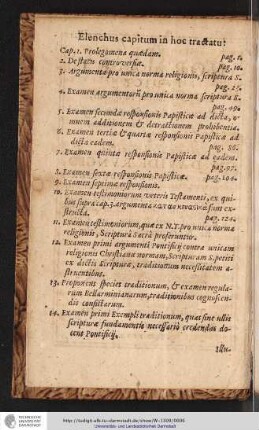 Elenchus capitum in hoc tractatu:
Cap. 1. Prolegomena quædam. pag. 1.
2. De statu controversiæ. pag. 12.
3. Argumenta pro unica norma religionis, scriptura S.
pag. 25.
4. Examen argumentorũ pro unica norma scriptura S.
pag. 49.
5. Examen secundæ responsionis Papisticæ ad dicta, omnem additionem & detractionem prohibentia.
6. Examen tertiæ & quartæ responsionis Papisticæ ad
dicta eadem. pag. 86.
7. Examen quintæ responsionis Papisticæ ad eadem.
pag. 97.
8. Examen sextæ responsionis Papisticæ. pag. 104.
9. Examen septimæ responsionis.
10. Examen testimoniorum veteris Testamenti, ex quibus supra cap. 3. argumenta sunt extructa. pag. 124.
11. Examen testimoniorum quæ ex N.T. pro unica norma
religionis, Scriptura Sacra proferuntur.
12. Examen primi argumenti Pontificij contra unicam
religionis Christianæ normam, Scripturam S. petiti
ex dictis Scripturæ, traditionum necessitatem astruentibus.
13. Proponens species traditionum, & examen regularum Bellarminianarum, traditionibus cognoscendis
14. Examen primi Exempli traditionum, quas sine ullis
scripturæ fundamentis necessariò credendas docent Pontificij.
http://tudigit.ulb.tu-darmstadt.de/show/W-1309/0006
Universitäts- und Landesbibliothek Darmstadt